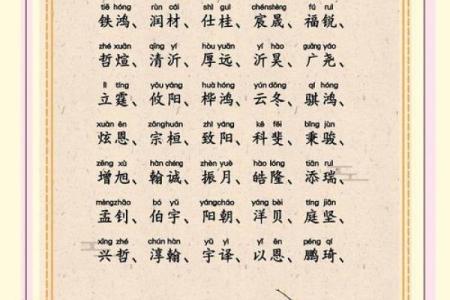 tiě hóng rùn cái shì guì chénshèng fú ruì
铁鸿、润材、仕桂、宸晟、福锐、
zhé xuān qīng yí hòu yuǎn yí hào guǎng yáo
哲煊、清沂、厚远、沂昊、广尧、
lì tíng yōu yáng huà hóng yún dōng qí hóng
立霆、攸阳、桦鸿、云冬、骐鸿、
xuàn ēn zōnghuán zhì yáng kē fěi bǐng jùn
炫恩、宗桓、致阳、科斐、秉骏、
zēng xù hàn chéng zhèn yuè hào lóng tiān ruì
增旭、翰诚、振月、皓隆、添瑞、
mèngzhāo bó yǔ yángcháo yáng bèi tíng jiān
孟钊、伯宇、阳朝、洋贝、庭坚、
xīng zhé chún hàn yǔ yì yǐ ēn péng qí
兴哲、淳翰、宇译、以恩、鹏琦、